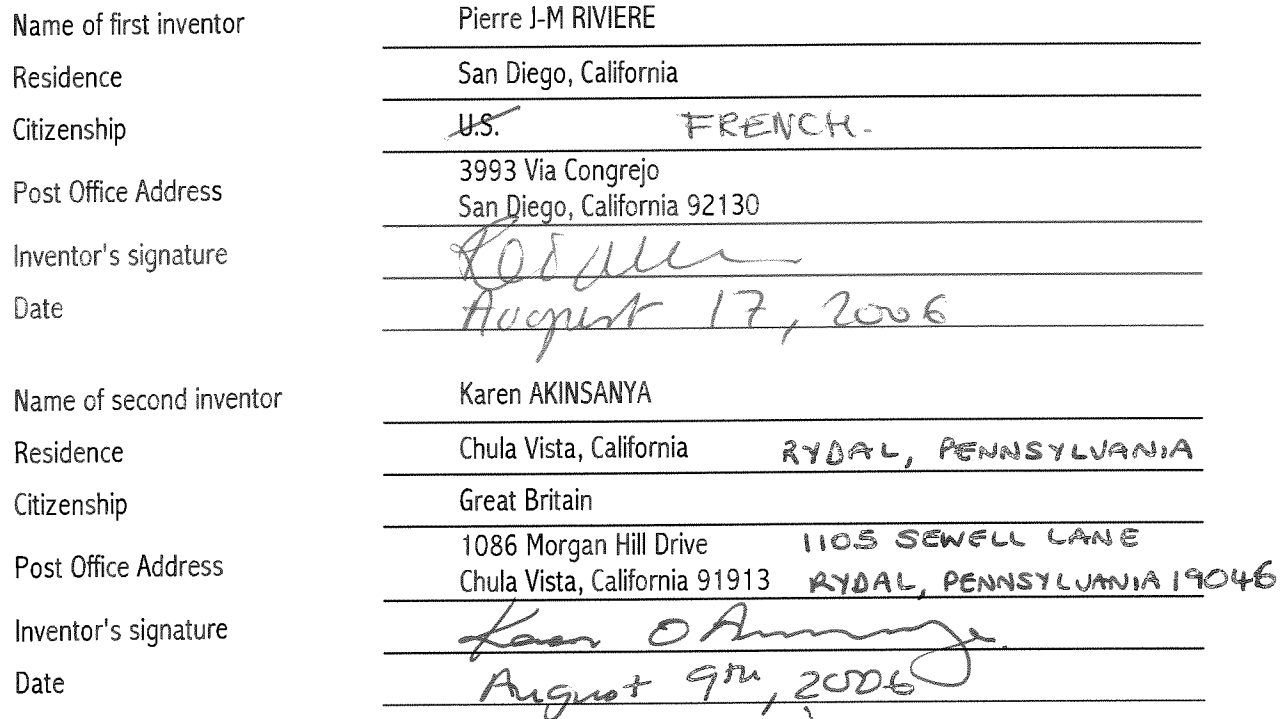 Name of first inventor Pierre J-M RIVIERE
Residence San Diego, California
Citizenship U.S. FRENCH.
Post Office Address 3993 Via Congrejo
San Diego, California 92130
Inventor's signature
Date August 17, 2006
Name of second inventor Karen AKINSANYA
Residence Chula Vista, California RYDAL, PENNSYLVANIA
Citizenship Great Britain
Post Office Address 1086 Morgan Hill Drive 1105 SEWELL LANE
Chula Vista, California 91913 RYDAL, PENNSYLVANIA 19046
Inventor's signature Karen O
Date August 9th, 2006